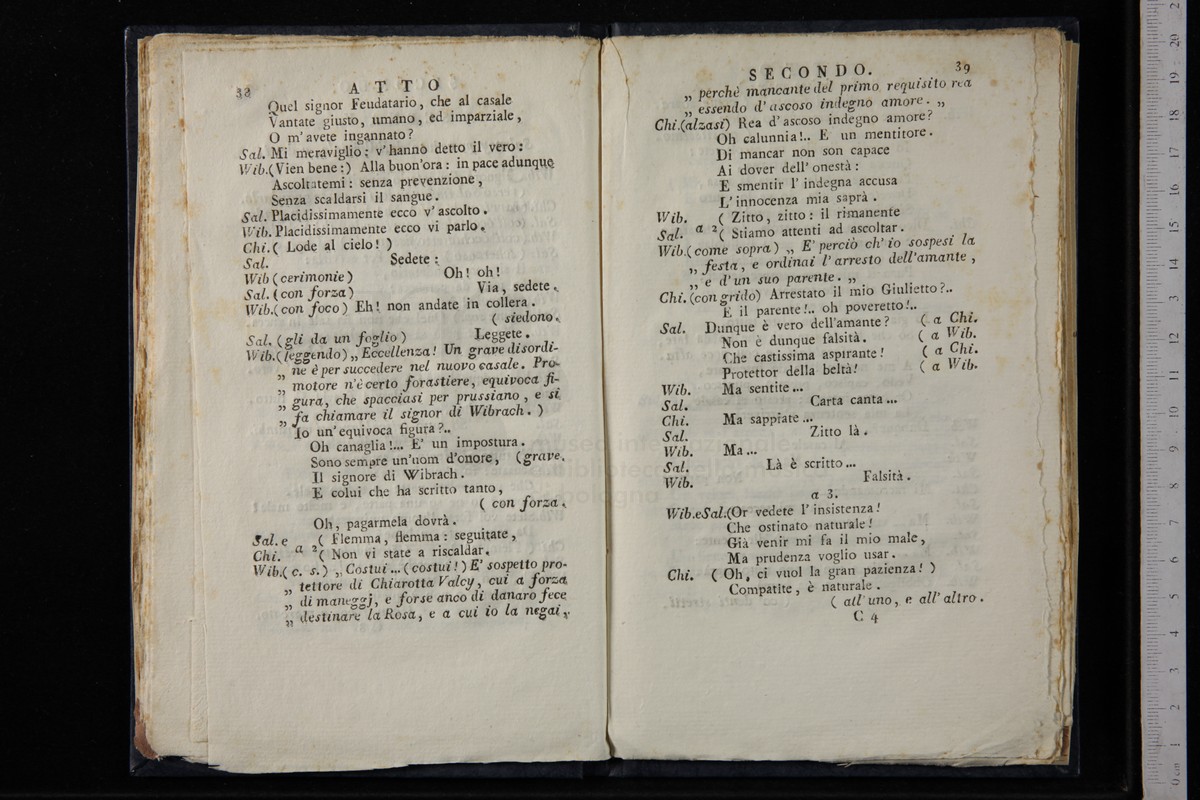 38
A T T O
Quel signor Feudatario, che al casale
Vantate giusto, umano, ed imparziale,
O m' avete ingannato?
Sal. Mi meraviglio; v' hanno detto il vero:
Wib.(Vien bene:) Alla buon'ora: in pace adunque
Ascoltatemi: senza prevenzione,
Senza scaldarsi il sangue.
Sal. Placidissimamente ecco v' ascolto.
Wib. Placidissimamente ecco vi parlo.
Chi.( Lode al cielo! )
Sal. Sedete:
Wib (cerimonie) Oh! oh!
Sal. (con forza) Via, sedete.
Wib.(con foco) Eh! non andate in collera.
( siedono.
Sal. (gli da un foglio) Leggete.
Wib.(leggendo) „ Eccellenza! Un grave disordi-
„ ne è per succedere nel nuovo casale. Pro-
„ motore n'è certo forastiere, equivoca fi-
„ gura, che spacciasi per prussiano, e si
„ fa chiamare il signor di Wibrach. )
Io un' equivoca figura?..
Oh canaglia!... E' un impostura.
Sono sempre un'uom d'onore, (grave.
Il signore di Wibrach.
E colui che ha scritto tanto,
( con forza.
Oh, pagarmela dovrà.
Sal. e ( Flemma, flemma: seguitate,
Chi. a 2( Non vi state a riscaldar.
Wib.( c. s.) „ Costui ... ( costui! ) E' sospetto pro-
„ tettore di Chiarotta Valcy, cui a forza
„ di maneggj, e forse anco di danaro fece
„ destinare la Rosa, e a cui io la negai,
SECONDO. 39
„ perchè mancante del primo requisito rea
„ essendo d' ascoso indegno amore. „
Chi.(alzasi) Rea d' ascoso indegno amore?
Oh calunnia!.. E un mentitore.
Di mancar non son capace
Ai dover dell' onestà:
E smentir l' indegna accusa
L' innocenza mia saprà.
Wib. ( Zitto, zitto: il rimanente
Sal. a 2( Stiamo attenti ad ascoltar.
Wib.(come sopra) „ E' perciò ch' io sospesi la
„ festa, e ordinai l' arresto dell'amante,
„ e d' un suo parente. „
Chi. (con grido) Arrestato il mio Giulietto?..
E il parente!.. oh poveretto!..
Sal. Dunque è vero dell'amante? ( a Chi.
Non è dunque falsità. ( a Wib.
Che castissima aspirante! ( a Chi.
Protettor della beltà! ( a Wib.
Wib. Ma sentite ...
Sal. Carta canta ...
Chi. Ma sappiate ...
Sal. Zitto là.
Wib. Ma ...
Sal. Là è scritto ...
Wib. Falsità.
a 3.
Wib.eSal.(Or vedete l' insistenza!
Che ostinato naturale!
Già venir mi fa il mio male,
Ma prudenza voglio usar.
Chi. ( Oh, ci vuol la gran pazienza! )
Compatite, è naturale.
( all' uno, e all' altro.
C 4
museo internazionale
biblioteca della musica
bologna